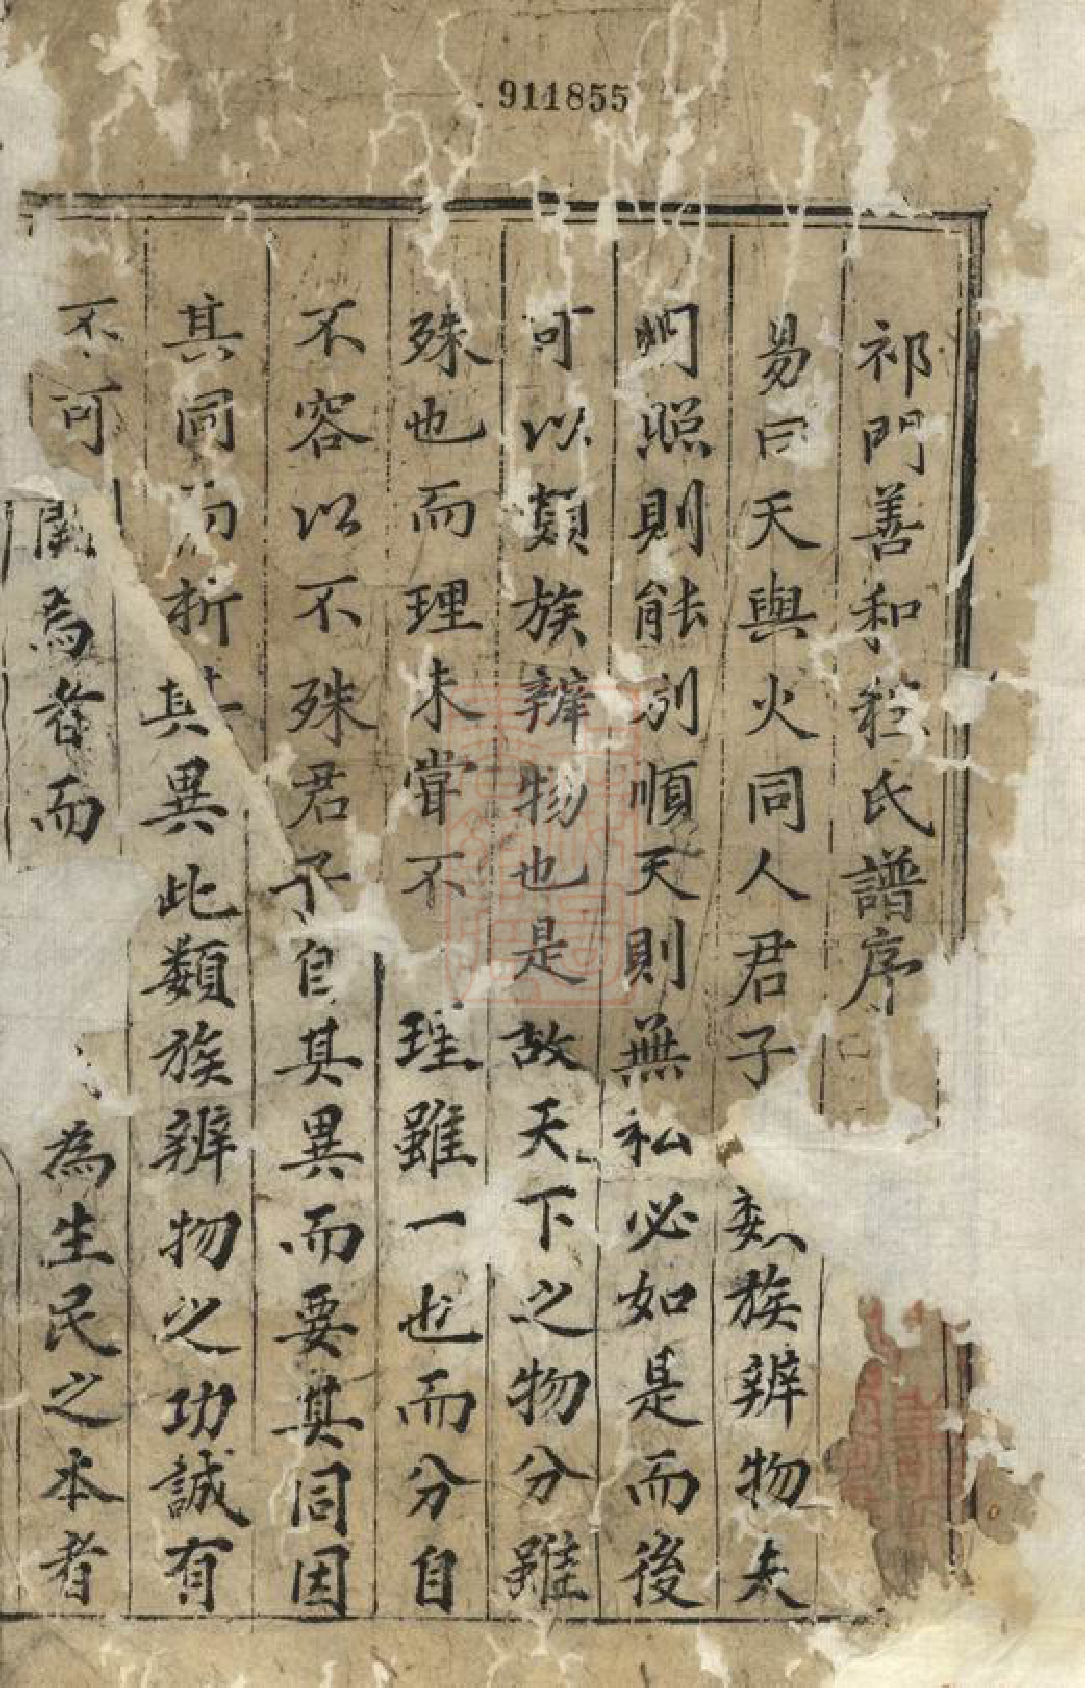 911855
祁門善和程氏譜序
易曰天與火同人君子類族辨物夫
明照則能別順天則無私必如是而後
可以類族辨物也是故天下之物分雖
殊也而理未嘗不理雖一也而分自
不容以不殊君子自其異而要其同因
其同而析其異此類族辨物之功誠有
不可闕為者而為生民之本者